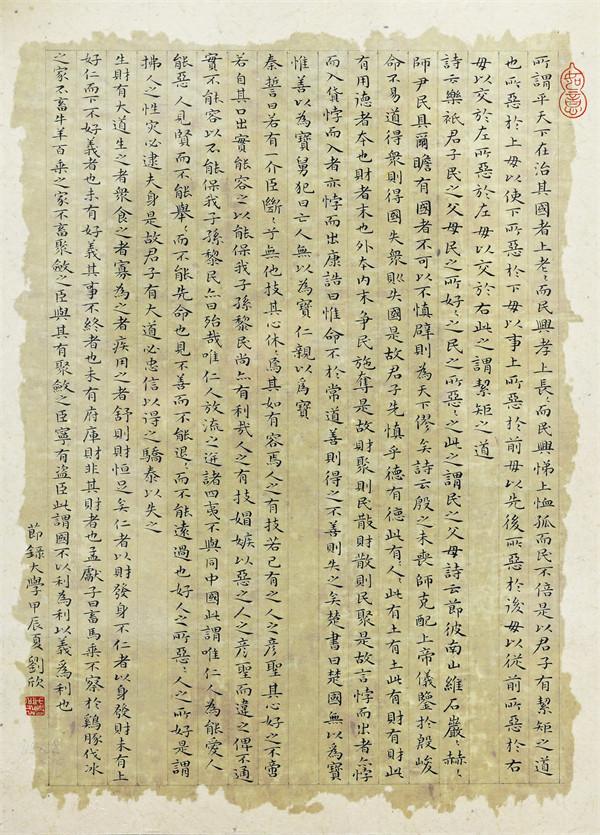 如意
所謂平天下在治其國者上老〻而民興孝上長〻而民興悌上恤孤而民不倍是以君子有絜矩之道
也所惡於上毋以使下所惡於下毋以事上所惡於前毋以先後所惡於後毋以從前所惡於右
毋以交於左所惡於左毋以交於右此之謂絜矩之道
詩云樂祇君子民之父母民之所好〻之民之所惡〻之此之謂民之父母詩云節彼南山維石巖〻赫〻
師尹民具爾瞻有國者不可以不慎辟則為天下僇矣詩云殷之未喪師克配上帝儀鑒於殷峻
命不易道得衆則得國失衆則失國是故君子先慎乎德有德此有人〻此有土有土此有財有財此
有用德者本也財者末也外本内末爭民施奪是故財聚則民散財散則民聚是故言悖而出者亦悖
而入貨悖而入者亦悖而出康誥曰惟命不於常道善則得之不善則失之矣楚書曰楚國無以為寶
惟善以為寶舅犯曰亡人無以為寶仁親以為寶
秦誓曰若有一介臣斷〻兮無他技其心休〻焉其如有容焉人之有技若已有之人之彥聖其心好之不啻
若自其口出實能容之以能保我子孫黎民尚亦有利哉人之有技媢嫉以惡之人之彥聖而違之俾不通
實不能容以不能保我子孫黎民亦曰殆哉唯仁人放流之迸諸四夷不與同中國此謂唯仁人為能愛人
能惡人見賢而不能舉〻而不能先命也見不善而不能退〻而不能遠過也好人之所惡〻人之所好是謂
拂人之性灾必逮夫身是故君子有大道必忠信以得之驕泰以失之
生財有大道生之者衆食之者寡為之者疾用之者舒則財恒足矣仁者以財發身不仁者以身發財未有上
好仁而下不好義者也未有好義其事不終者也未有府庫財非其財者也孟獻子曰畜馬乘不察於鷄豚伐冰
之家不畜牛羊百乘之家不畜聚斂之臣與其有聚斂之臣寧有盜臣此謂國不以利為利以義為利也
節錄大學甲辰夏劉欣